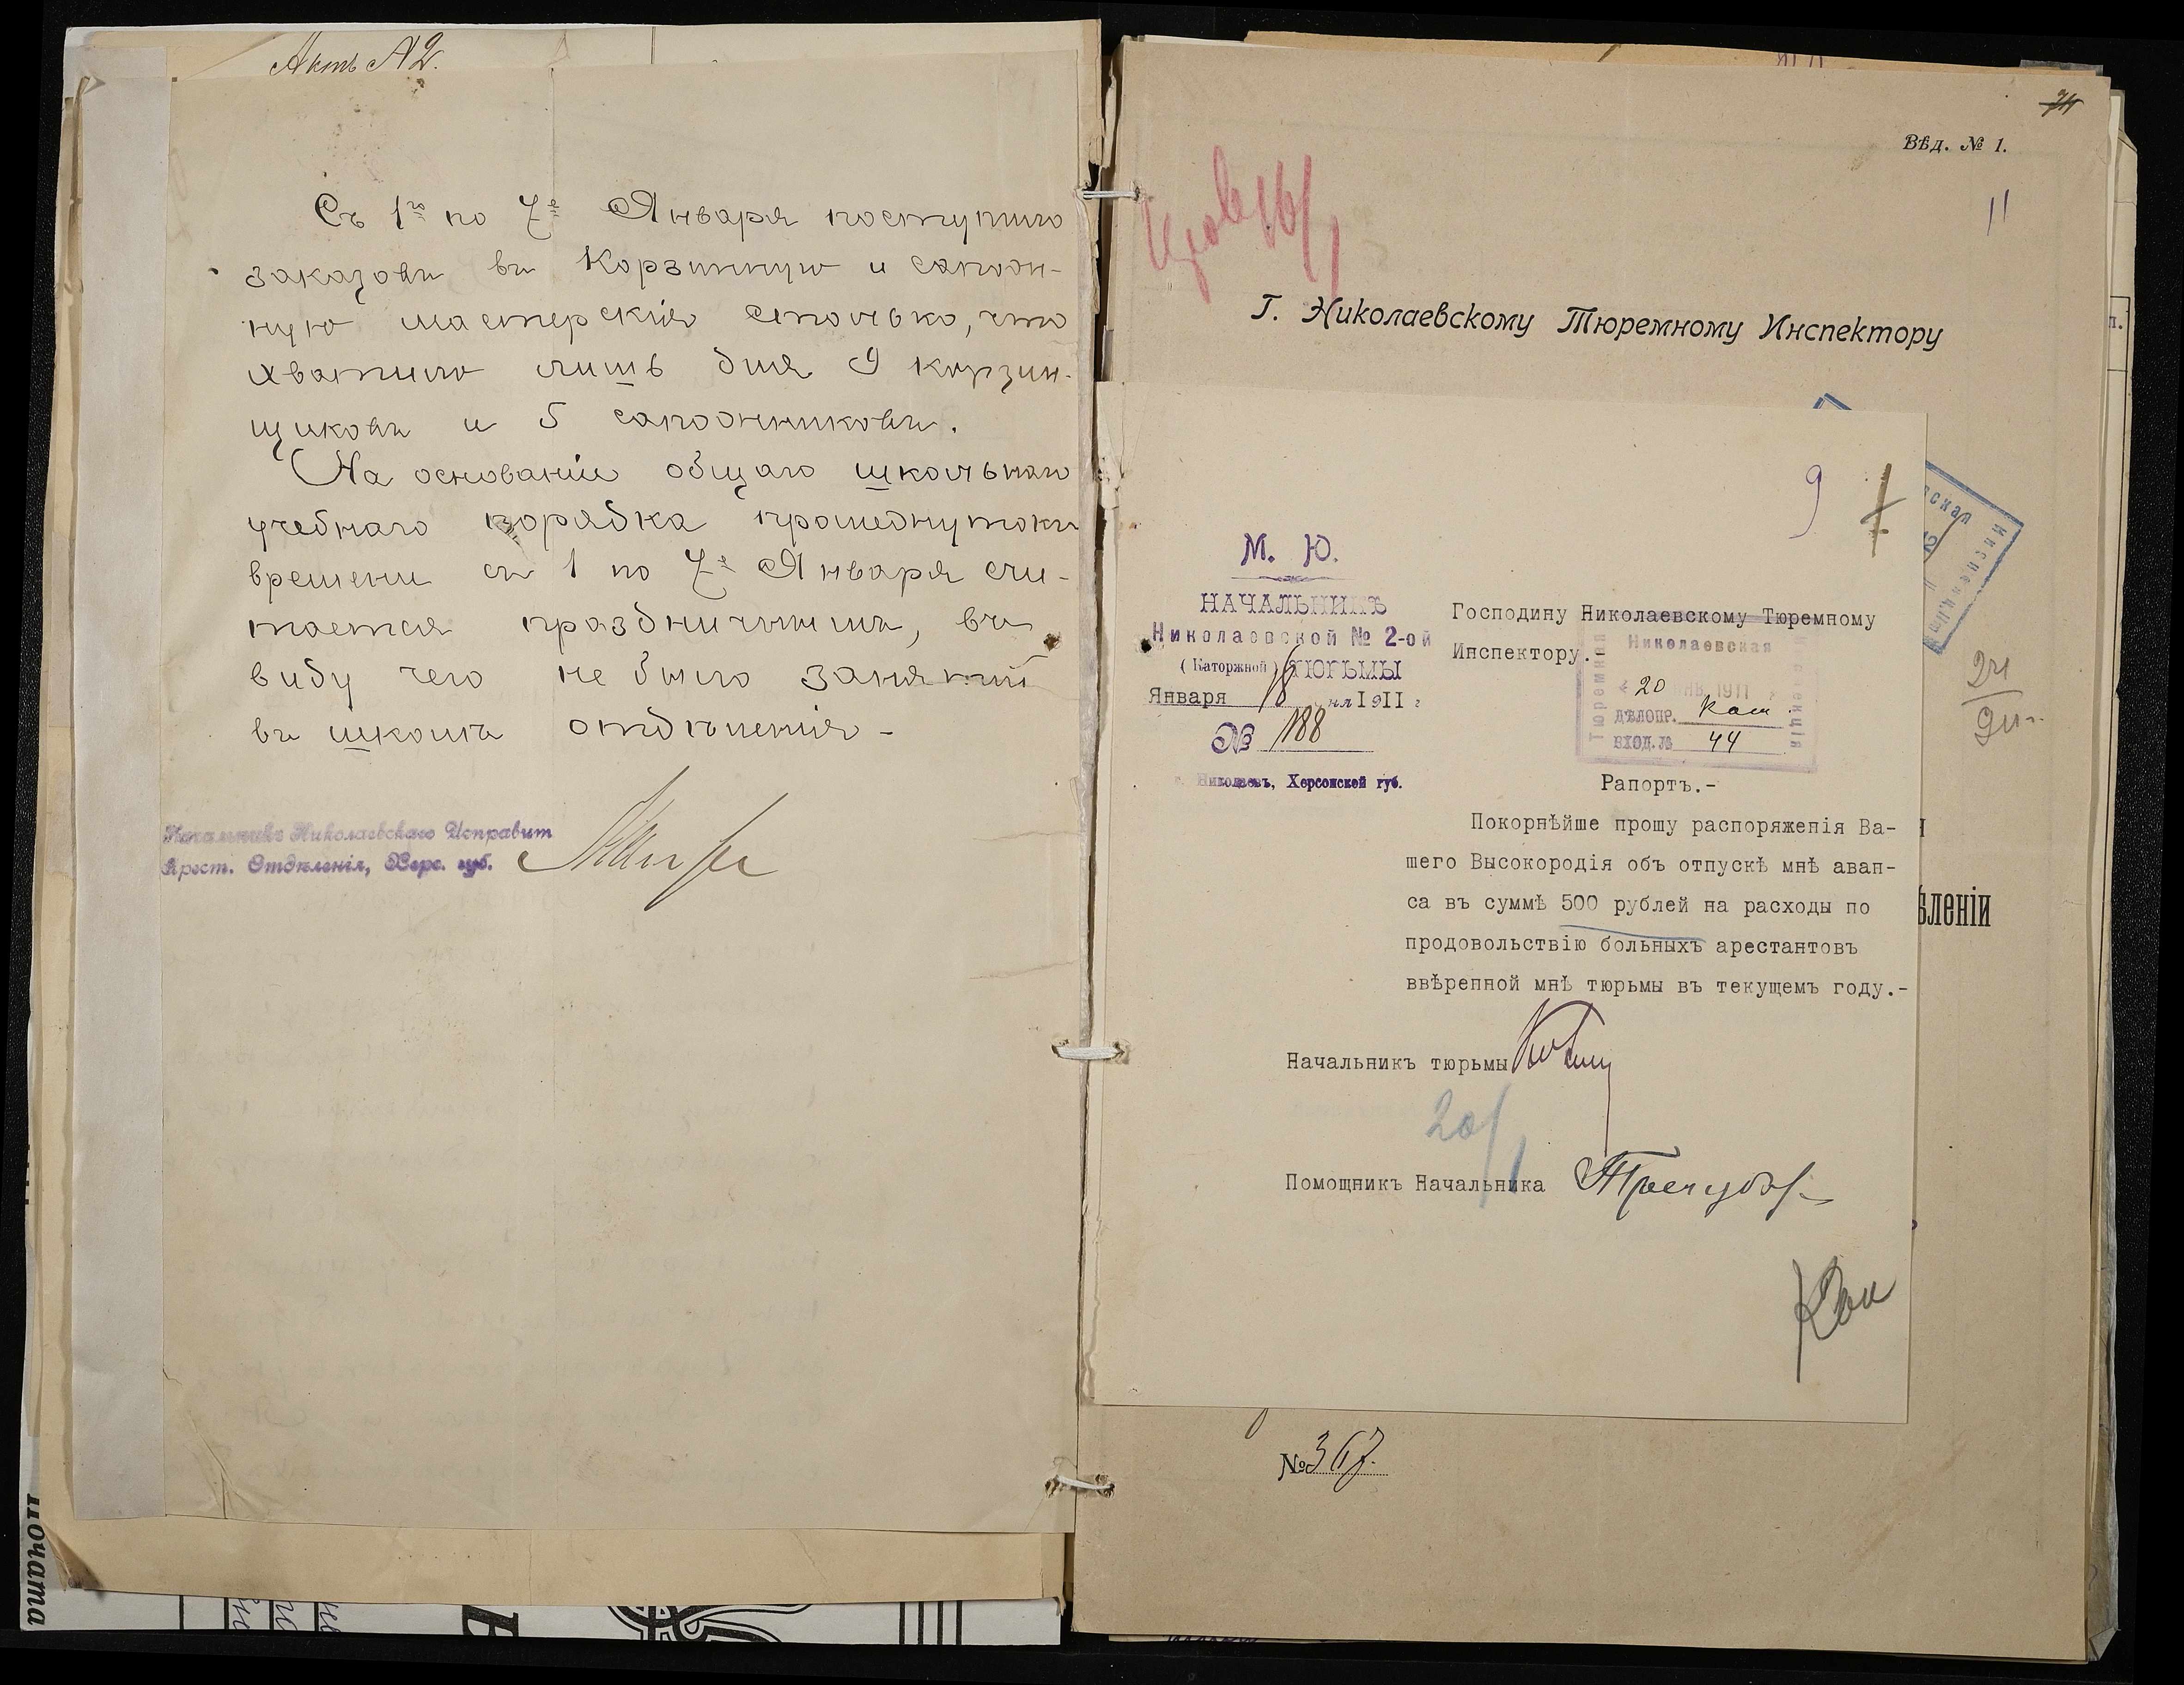 Актъ № 2.
Съ 1го по 7е Января поступило
заказовъ въ Корзинную и сапож-
ную мастерскія столько, что
хватило лишь для 9 корзин-
щиковъ и 5 сапожниковъ.
На основаніи общаго школьнаго
учебнаго порядка промежутокъ
времени съ 1 по 7е Января счи-
тается праздничнымъ, въ
виду чего не было занятій
въ школѣ отдѣленія -
Начальникъ Николаевскаго Исправит
Арест. Отдѣленія, Херс. губ.
Вѣд. № 1.
11
Г. Николаевскому Тюремному Инспектору
9
М. Ю.
НАЧАЛЬНИКЪ
Николаевской № 2-ой
(Каторжной) ТЮРЬМЫ
Января 18 дня 1911 г
№ 188
г. Николаевъ, Херсонской губ.
Господину Николаевскому Тюремному
Инспектору.-
Николаевская
Тюремная
Инспекція
20 ЯНВ. 1911
ДѢЛОПР. Кат.
ВХОД. № 44
Рапортъ.-
Покорнѣйше прошу распоряженія Ва-
шего Высокородія объ отпускѣ мнѣ аван-
са въ суммѣ 500 рублей на расходы по
продовольствію больныхъ арестантовъ
ввѣренной мнѣ тюрьмы въ текущемъ году.-
Начальникъ тюрьмы
20/1
Помощникъ Начальника
ѣленіи
№ 367.
Почата